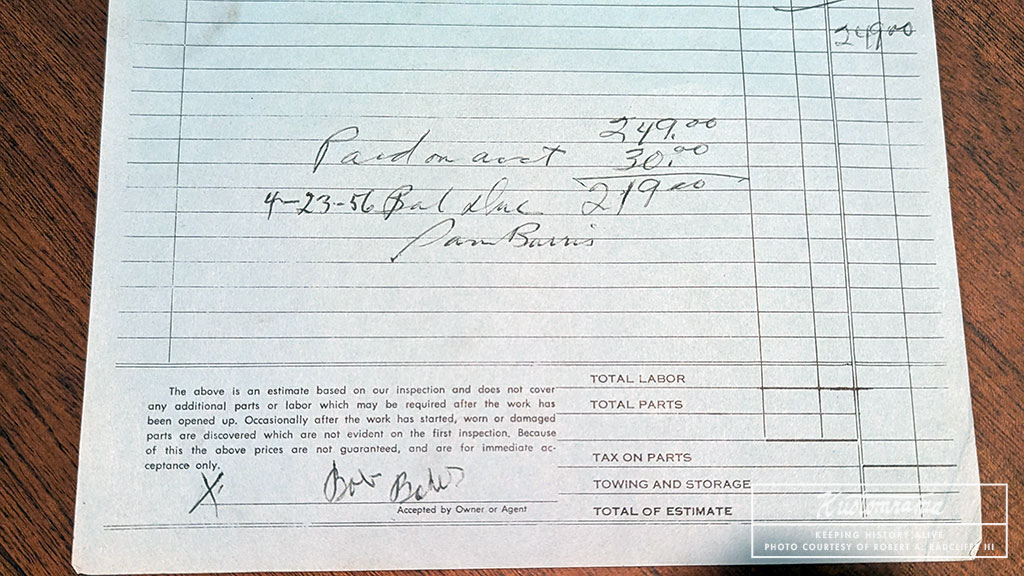 249.00
249.00
Paid on acct 30.00
4-23-56 Bal Due 219.00
Sam Burris
The above is an estimate based on our inspection and does not cover
any additional parts or labor which may be required after the work has
been opened up. Occasionally after the work has started, worn or damaged
parts are discovered which are not evident on the first inspection. Because
of this the above prices are not guaranteed, and are for immediate ac-
ceptance only.
X Bob
Accepted by Owner or Agent
TOTAL LABOR
TOTAL PARTS
TAX ON PARTS
TOWING AND STORAGE
TOTAL OF ESTIMATE
Kustomrama
KEEPING HISTORY ALIVE
PHOTO COURTESY OF ROBERT A. RADCLIFFE III